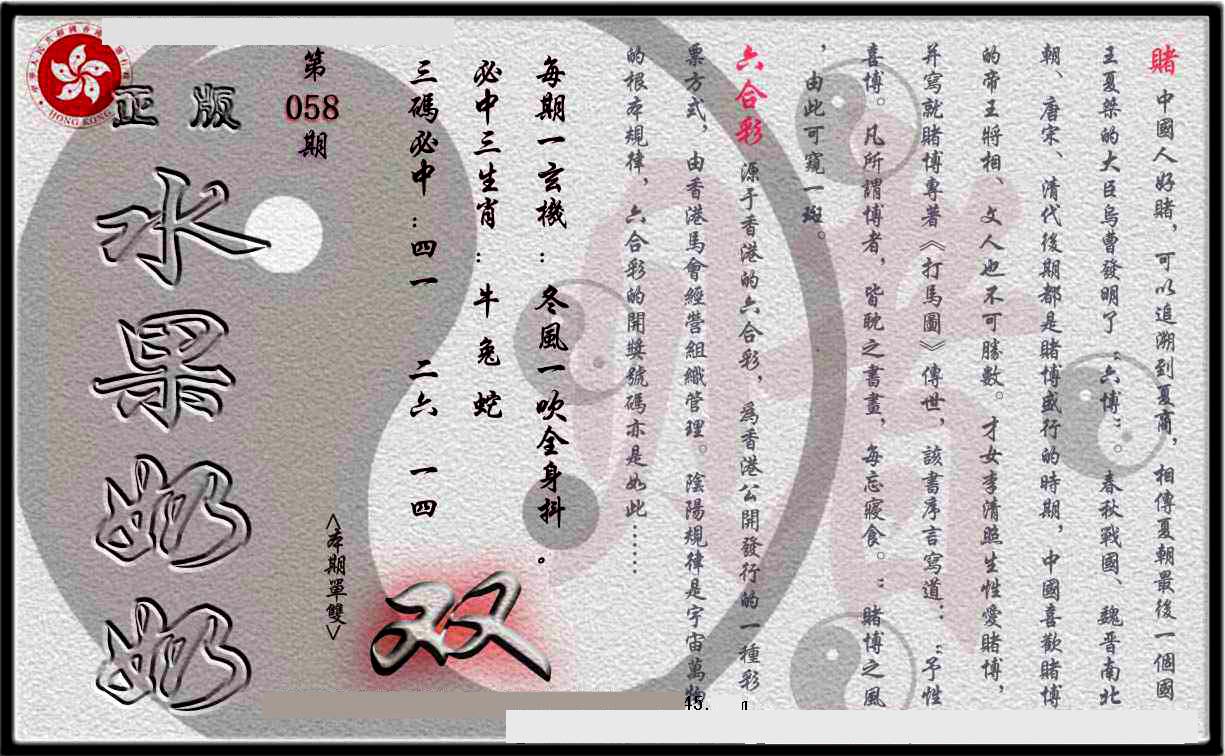 賭 中國人好賭，可以追溯到夏商，相傳夏朝最後一個國
王夏桀的大臣烏曹發明了“六博”。春秋戰國、魏晋南北
朝、唐宋、清代後期都是賭博盛行的時期，中國喜歡賭博
的帝王將相、文人也不可勝數。才女李清照生性愛賭博，
并寫就賭博專著《打馬圖》傳世，該書序言寫道：“予性
喜博。凡所謂博者，皆耽之書晝，每忘寢食。”賭博之風
，由此可窺一斑。
六合彩 源于香港的六合彩，爲香港公開發行的一種彩
票方式，由香港馬會經營組織管理。陰陽規律是宇宙萬物
的根本規律，六合彩的開獎號碼亦是如此……
每期一玄機：冬風一吹全身抖。
必中三生肖：牛 兔 蛇
三碼必中：四一 二六 一四
<本期單雙>
双
第
058
期
正版
水果奶奶
HONG KONG
45.